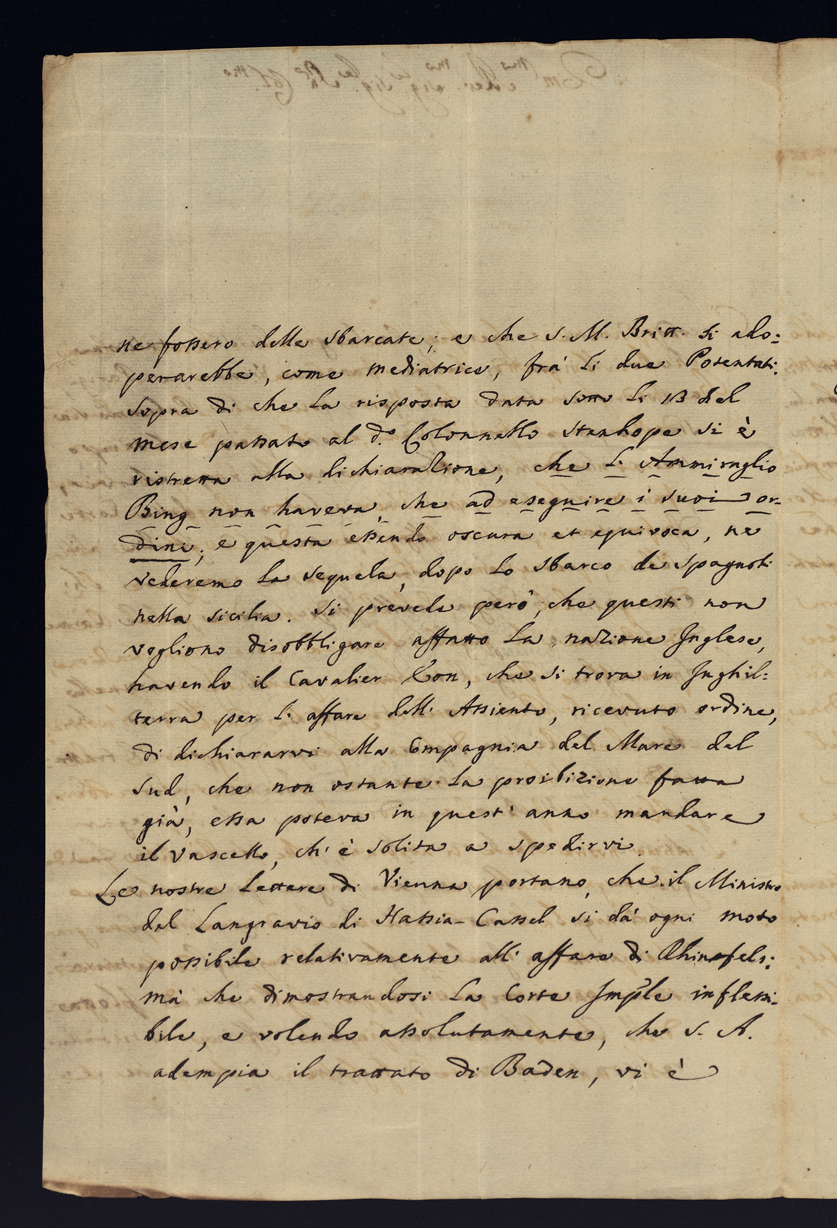 ne fossero delle sbarcate; e che S. M. Britt. si ado=
perarebbe, come mediatrice, frà li due Potentati.
Sopra di che la risposta data sotto li 13 del
mese passato al d.º Colonnello Stanhope si è
ristretta alla dichiarazione, che l'Ammiraglio
Bing non haveva, che ad eseguire i suoi or=
dini; e questa essendo oscura et equivoca, ne
vederemo la sequela, dopo lo sbarco de Spagnoli
nella Sicilia. Si prevede però, che questi non
vogliono disobbligare affatto la nazione Inglese,
havendo il Cavalier Eon, che si trova in Inghil=
terra per l'affare dell'Assiento, ricevuto ordine,
di dichiararvi alla Compagnia del Mare del
Sud, che non ostante la proibizione fatta
già, essa poteva in quest'anno mandare
il vascello, ch'è solita a spedirvi.
Le nostre lettere di Vienna portano, che il Ministro
del Langravio di Hassia-Cassel si dà ogni moto
possibile relativamente all'affare di Rhinsfels;
mà che dimostrandosi la Corte Imp̃le inflessi=
bile, e volendo assolutamente, che S. A.
adempia il trattato di Baden, vi è